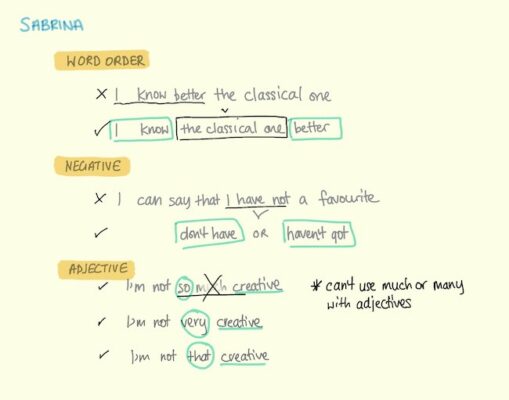 SABRINA
WORD ORDER
X I know better the classical one
✓ I know the classical one better
NEGATIVE
X I can say that I have not a favourite
✓ don't have OR haven't got
ADJECTIVE
✓ I'm not so much creative * can't use much or many
with adjectives
✓ I'm not very creative
✓ I'm not that creative